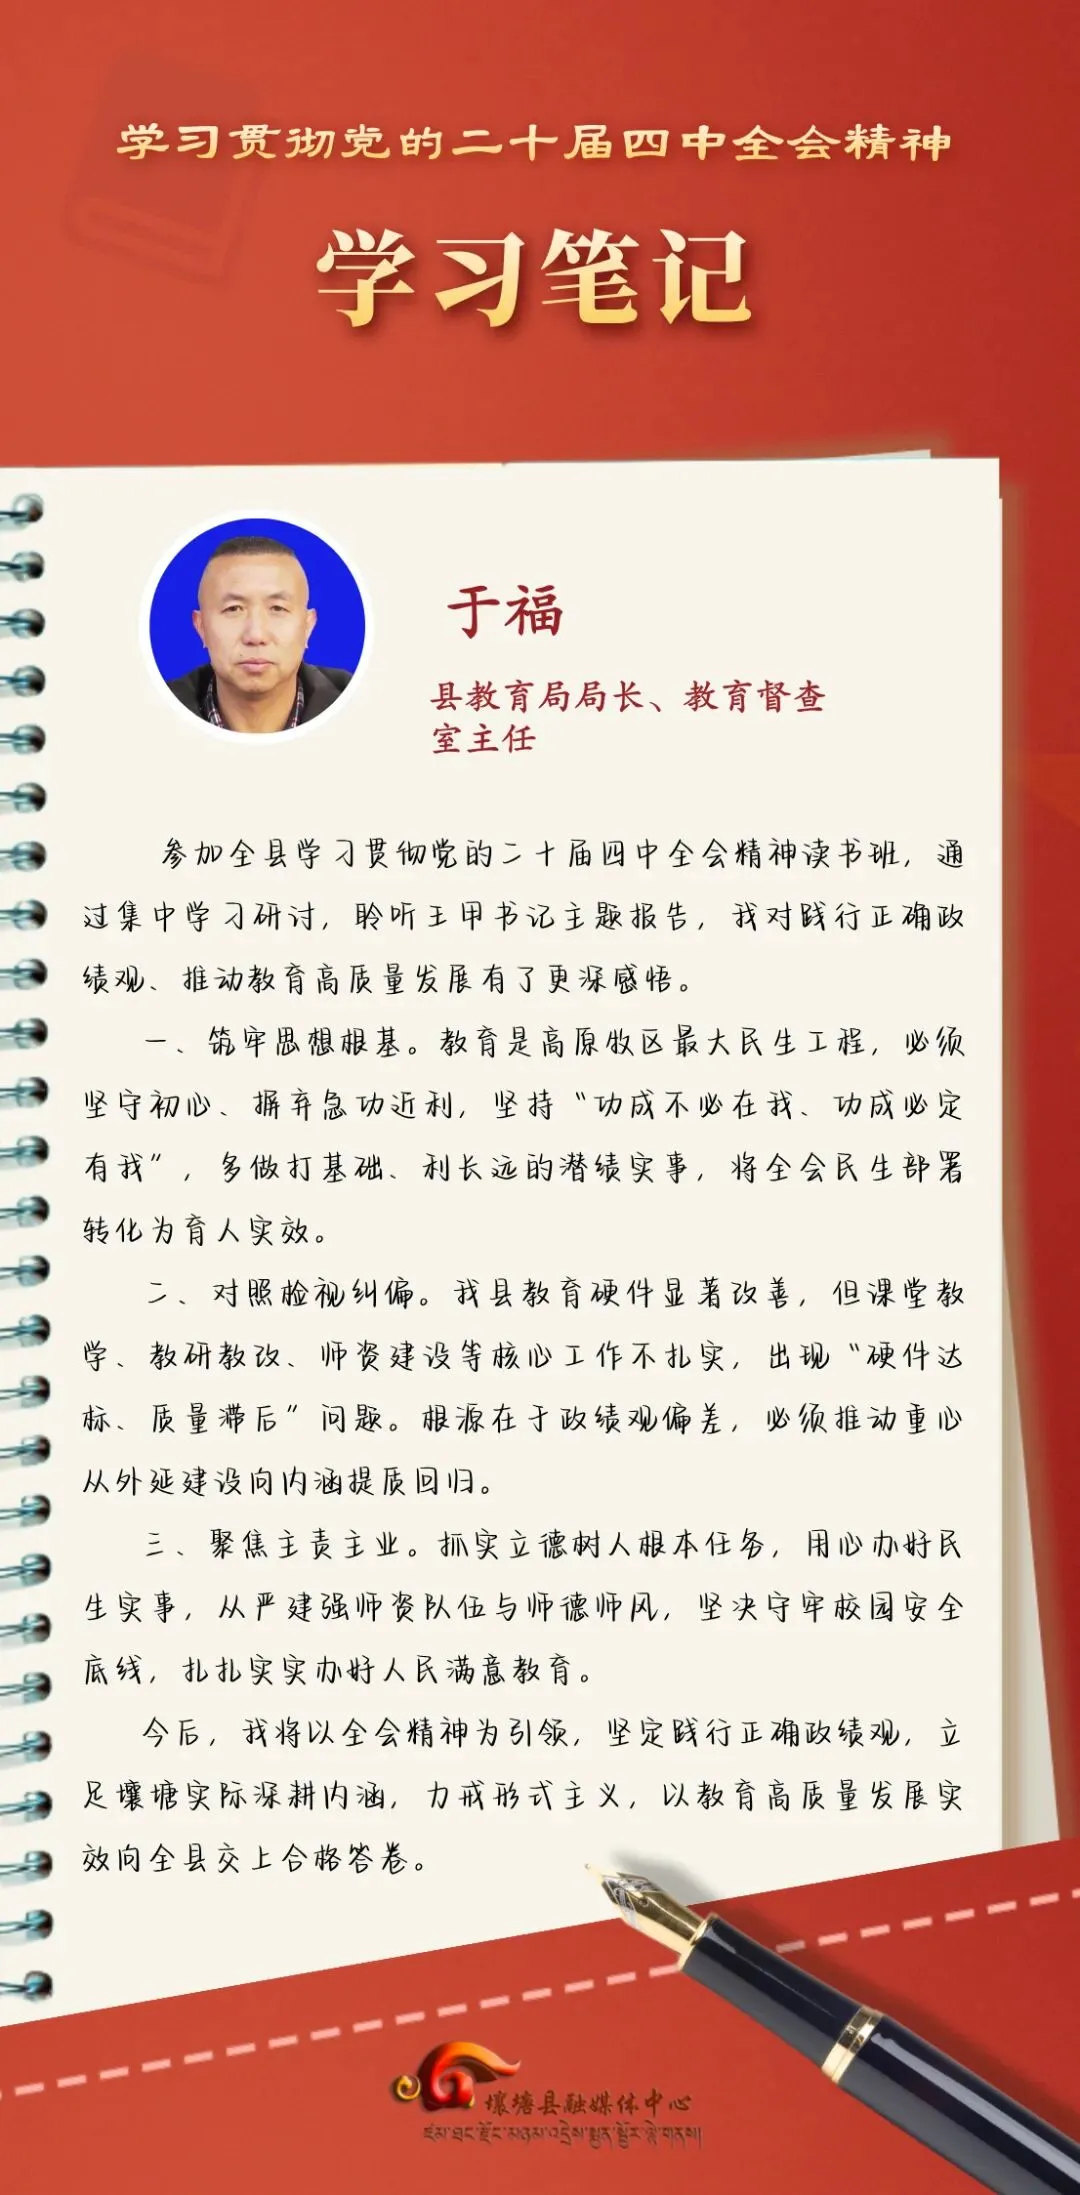 学习贯彻党的二十届四中全会精神
学习笔记
于福
县教育局局长、教育督查
室主任
参加全县学习贯彻党的二十届四中全会精神读书班，通
过集中学习研讨，聆听王甲书记主题报告，我对践行正确政
绩观、推动教育高质量发展有了更深感悟。
一、筑牢思想根基。教育是高原牧区最大民生工程，必须
坚守初心、摒弃急功近利，坚持“功成不必在我、功成必定
有我”，多做打基础、利长远的潜绩实事，将全会民生部署
转化为育人实效。
二、对照检视纠偏。我县教育硬件显著改善，但课堂教
学、教研教改、师资建设等核心工作不扎实，出现“硬件达
标、质量滞后”问题。根源在于政绩观偏差，必须推动重心
从外延建设向内涵提质回归。
三、聚焦主责主业。抓实立德树人根本任务，用心办好民
生实事，从严建强师资队伍与师德师风，坚决守牢校园安全
底线，扎扎实实办好人民满意教育。
今后，我将以全会精神为引领，坚定践行正确政绩观，立
足壤塘实际深耕内涵，力戒形式主义，以教育高质量发展实
效向全县交上合格答卷。
壤塘县融媒体中心
འཛམ་ཐང་རྫོང་མཉམ་འདྲེས་སྨྱན་སྦྱོར་ལྟེ་གནས།